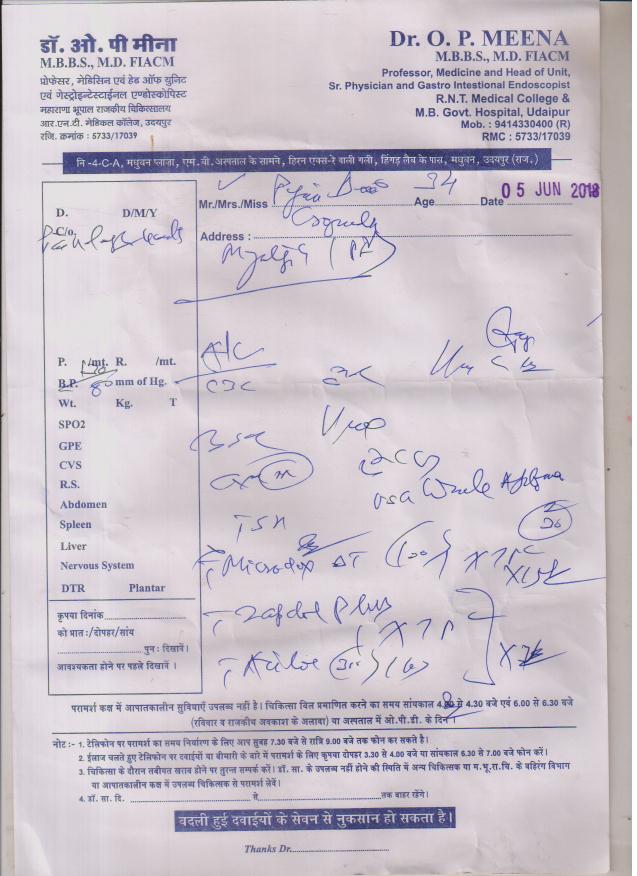 डॉ. ओ. पी मीना
M.B.B.S., M.D. FIACM
प्रोफेसर, मेडिसिन एवं हेड ऑफ युनिट
एवं गेस्ट्रोइन्टेस्टाईनल एण्डोस्कोपिस्ट
महाराणा भूपाल राजकीय चिकित्सालय
आर.एन.टी. मेडिकल कॉलेज, उदयपुर
रजि. क्रमांक : 5733/17039
Dr. O. P. MEENA
M.B.B.S., M.D. FIACM
Professor, Medicine and Head of Unit,
Sr. Physician and Gastro Intestional Endoscopist
R.N.T. Medical College &
M.B. Govt. Hospital, Udaipur
Mob. : 9414330400 (R)
RMC : 5733/17039
नि-4-C-A, मधुवन प्लाज़ा, एम.बी.अस्पताल के सामने, हिरन एक्स-रे वाली गली, हिंगड़ लैब के पास, मधुवन, उदयपुर (राज.)
Mr./Mrs./Miss Age 34 Date 05 JUN 2018
Address :
D. D/M/Y
C/o.
P. /mt. R. /mt.
B.P. mm of Hg.
Wt. Kg. T
SPO2
GPE
CVS
R.S.
Abdomen
Spleen
Liver
Nervous System
DTR Plantar
A/C
CBC
ECG
USG Whole Abdomen
TSH
T Microdox DT (100) X 7
T Zafdol Plus
X 7
कृपया दिनांक
को प्रातः/दोपहर/सांय
पुनः दिखावें।
आवश्यकता होने पर पहले दिखावें।
परामर्श कक्ष में आपातकालीन सुविधाएँ उपलब्ध नहीं है। चिकित्सा बिल प्रमाणित करने का समय सांयकाल से 4.30 बजे एवं 6.00 से 6.30 बजे
(रविवार व राजकीय अवकाश के अलावा) या अस्पताल में ओ.पी.डी. के दिन।
नोट :- 1. टेलिफोन पर परामर्श का समय निर्धारण के लिए आप सुबह 7.30 बजे से रात्रि 9.00 बजे तक फोन कर सकते है।
2. ईलाज चलते हुए टेलिफोन पर दवाईयों या बीमारी के बारे में परामर्श के लिए कृपया दोपहर 3.30 से 4.00 बजे या सांयकाल 6.30 से 7.00 बजे फोन करें।
3. चिकित्सा के दौरान तबीयत खराब होने पर तुरन्त सम्पर्क करें। डॉ. सा. के उपलब्ध नहीं होने की स्थिति में अन्य चिकित्सक या म.भू.रा.चि. के बहिरंग विभाग
या आपातकालीन कक्ष में उपलब्ध चिकित्सक से परामर्श लेवें।
4. डॉ. सा. दि. से, तक बाहर रहेंगे।
बदली हुई दवाईयों के सेवन से नुकसान हो सकता है।
Thanks Dr.